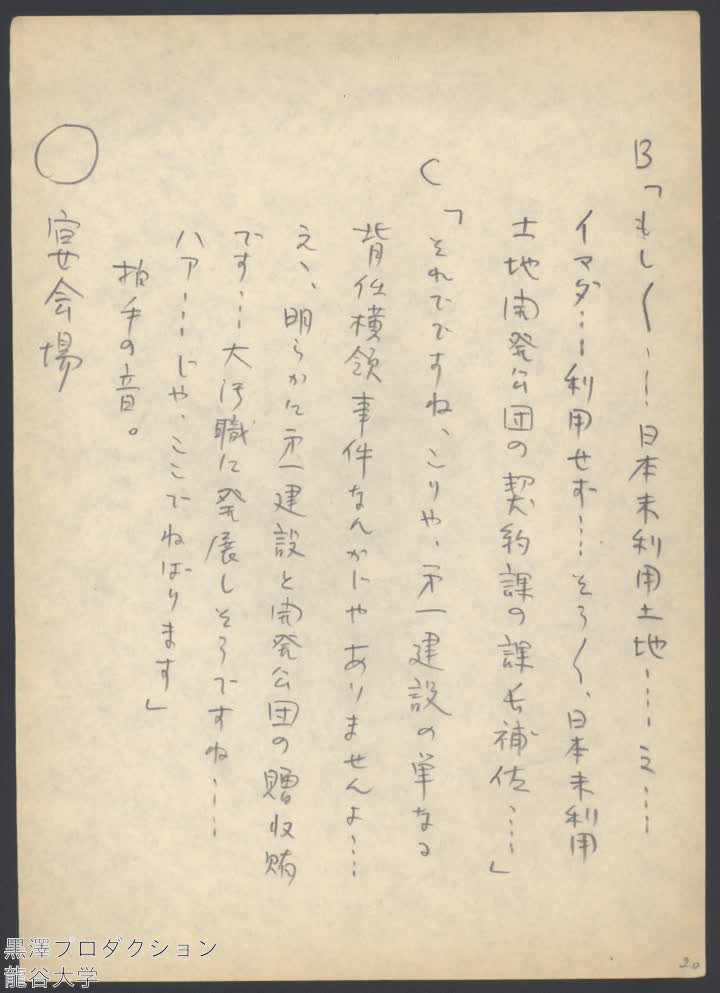 B「もし〱……日本未利用土地……え……
イマダ……利用せず……そう〱、日本未利用
土地開発公団の契約課の課長補佐……」
C「それでですね、こりや、才一建設の単なる
背任横領事件なんかじやありませんよ……
えゝ、明らかに才一建設と開発公団の贈収賄
です……大汚職に発展しそうですね……
ハア……じや、ここでねばります」
拍手の音。
○宴会場
20
黒澤プロダクション
龍谷大学